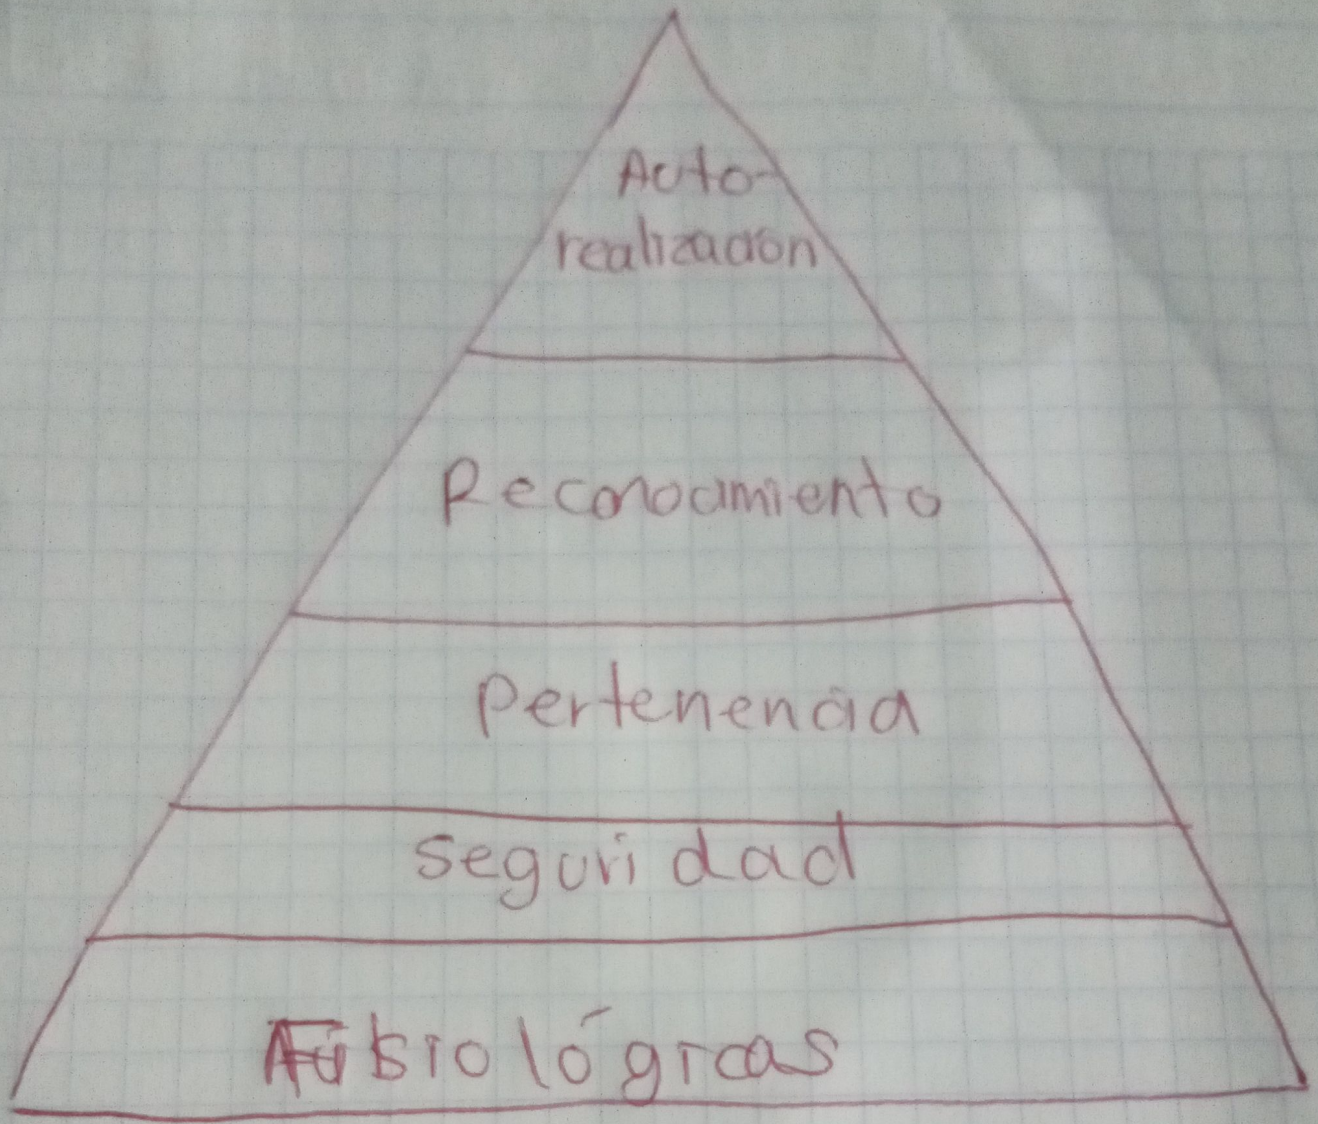 Auto-
realización
Reconocimiento
pertenencia
seguridad
Fisiológicas